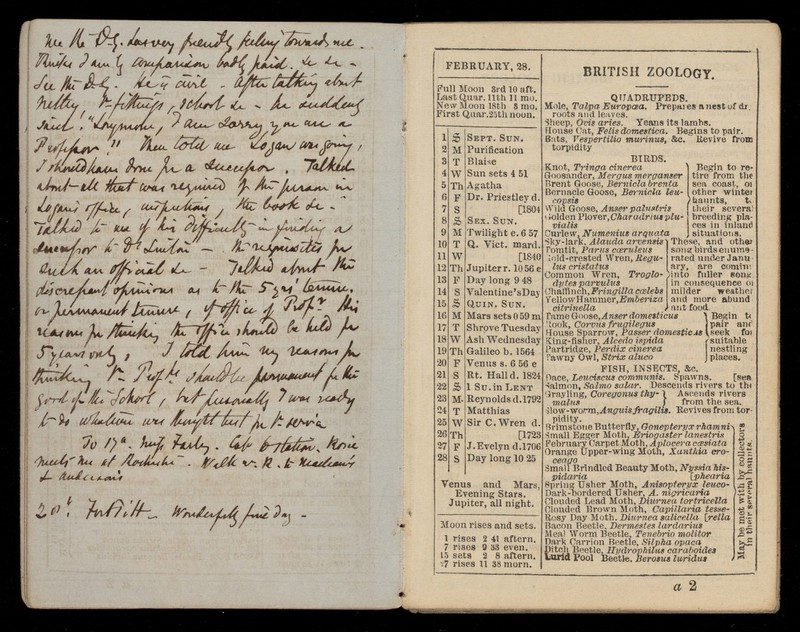 the D.G. has very friendly feeling towards me.
Thinks I am by comparison badly paid. &c &c -
See the D.G. He is civil - After talking about
Netley, & fittings, school &c - he suddenly
said, "Longmore, I am sorry you are a
Professor"!! Then told me Logan was going,
I should have done for a successor. Talked
about all that was required of the person in
Logan's office, inspections, the book &c -
Talked to me of his difficulty in finding a
successor to Dr - the requisites for
such an official &c - Talked about the
discrepant opinions as to the 5 yrs' tenure,
or permanent tenure, of office of Profr. His
reasons for thinking the office should be held for
5 years only, I told him my reasons for
thinking the Profrs should be permanent for the
good of the School, but personally I was ready
to do whatever was thought best for the service
To 17a. Miss Farley. Cab to station. Rosie
meets me at Rochester. Walk w. R. to Maclean's
& Anderson's
20th. Fort Pitt - Wonderfully fine day -
FEBRUARY, 28.
Full Moon 3rd 10 aft.
Last Quar. 11th 11 mo.
New Moon 18th 8 mo.
First Quar. 25th noon.
1 S SEPT. SUN.
2 M Purification
3 T Blaise
4 W Sun sets 4 51
5 Th Agatha
6 F Dr. Priestley d.
7 S [1804
8 S SEX. SUN.
9 M Twilight e. 6 57
10 T Q. Vict. mard.
11 W [1840
12 Th Jupiter r. 10 56 e
13 F Day long 9 48
14 S Valentine's Day
15 S QUIN. SUN.
16 M Mars sets 0 59 m
17 T Shrove Tuesday
18 W Ash Wednesday
19 Th Galileo b. 1564
20 F Venus s. 6 56 e
21 S Rt. Hall d. 1824
22 S 1 SU. in LENT
23 M Reynolds d. 1792
24 T Matthias
25 W Sir C. Wren d.
26 Th [1723
27 F J. Evelyn d. 1706
28 S Day long 10 25
Venus and Mars,
Evening Stars.
Jupiter, all night.
Moon rises and sets.
1 rises 2 41 aftern.
7 rises 9 33 even.
15 sets 2 8 aftern.
27 rises 11 38 morn.
BRITISH ZOOLOGY.
QUADRUPEDS.
Mole, Talpa Europœa. Prepares a nest of dr.
roots and leaves.
Sheep, Ovis aries. Yeans its lambs.
House Cat, Felis domestica. Begins to pair.
Bats, Vespertilio murinus, &c. Revive from
torpidity
BIRDS.
Knot, Tringa cinerea
Goosander, Mergus merganser
Brent Goose, Bernicla brenta
Bernacle Goose, Bernicla leu-
copsis
Wild Goose, Anser palustris
Golden Plover, Charadrius plu-
vialis
Curlew, Numenius arquata
Begin to re-
tire from the
sea coast, or
other winter
haunts, t
their several
breeding pla-
ces in inland
situations.
Sky-lark, Alauda arvensis
Tomtit, Parus cæruleus
Gold-crested Wren, Regu-
lus cristatus
Common Wren, Troglo-
dytes parvulus
Chaffinch, Fringilla cœlebs
Yellow Hammer, Emberiza
citrinella
These, and other
song birds enume-
rated under Janu-
ary, are coming
into fuller song
in consequence of
milder weather
and more abund
ant food.
Tame Goose, Anser domesticus
Rook, Corvus frugilegus
House Sparrow, Passer domesticus
King-fisher, Alcedo ispida
Partridge, Perdix cinerea
Tawny Owl, Strix aluco
Begin to
pair and
seek for
suitable
nestling
places.
FISH, INSECTS, &c.
Dace, Leuciscus communis. Spawns. [sea
Salmon, Salmo salar. Descends rivers to the
Grayling, Coregonus thy-
malus
Ascends rivers
from the sea.
Slow-worm, Anguis fragilis. Revives from tor-
pidity.
Brimstone Butterfly, Gonepteryx rhamni
Small Egger Moth, Eriogaster lanestris
February Carpet Moth, Aplocera cæsiata
Orange Upper-wing Moth, Xanthia cro-
ceago
Small Brindled Beauty Moth, Nyssia his-
pidaria [phearia
Spring Usher Moth, Anisopteryx leuco-
Dark-bordered Usher, A. nigricaria
Clouded Lead Moth, Diurnea tortricella
Clouded Brown Moth, Capillaria tesse-
Rosy Day Moth, Diurnea salicella [rella
Bacon Beetle, Dermestes lardarius
Meal Worm Beetle, Tenebrio molitor
Dark Carrion Beetle, Silpha opaca
Ditch Beetle, Hydrophilus caraboides
Lurid Pool Beetle, Berosus luridus
May be met with by collectors
in their several haunts.
a 2